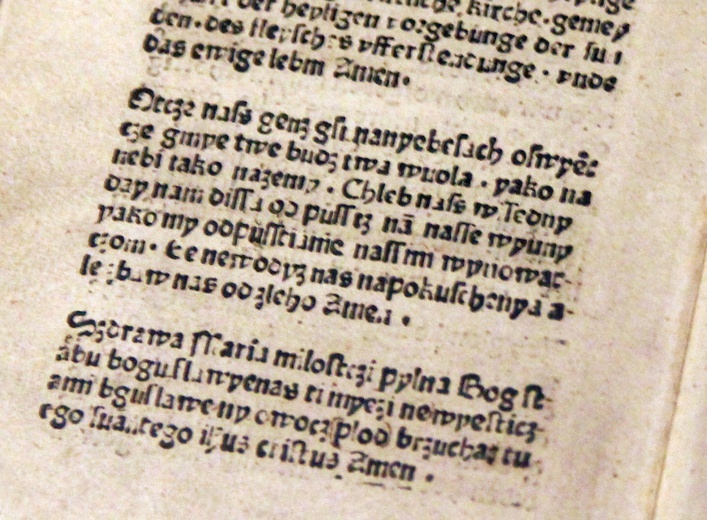 der heyligen vorgebunge der sun
den · des fleysches vfferstendunge · vnde
das ewige lebm Amen ·
Otcze nass genz gsi nanyebesach oswyēc
cze gmye twe budz twa wuola · yako na
nebi tako nazemy · Chleb nass w Tedny
day nam dissa od pustz nā nasse wyuny
yako my odpusstiamie nassim wynowac-
zom · Ee newodyz nas napokuschenya a-
le zbaw nas od zleho Amen ·
Szdrawa Maria milostczi pylna Bog st-
abu boguslawyenas ti myezi newyesticz-
ami bguslaweny owocz plod brzuchaz tu
ego suantego ihus cristus Amen ·